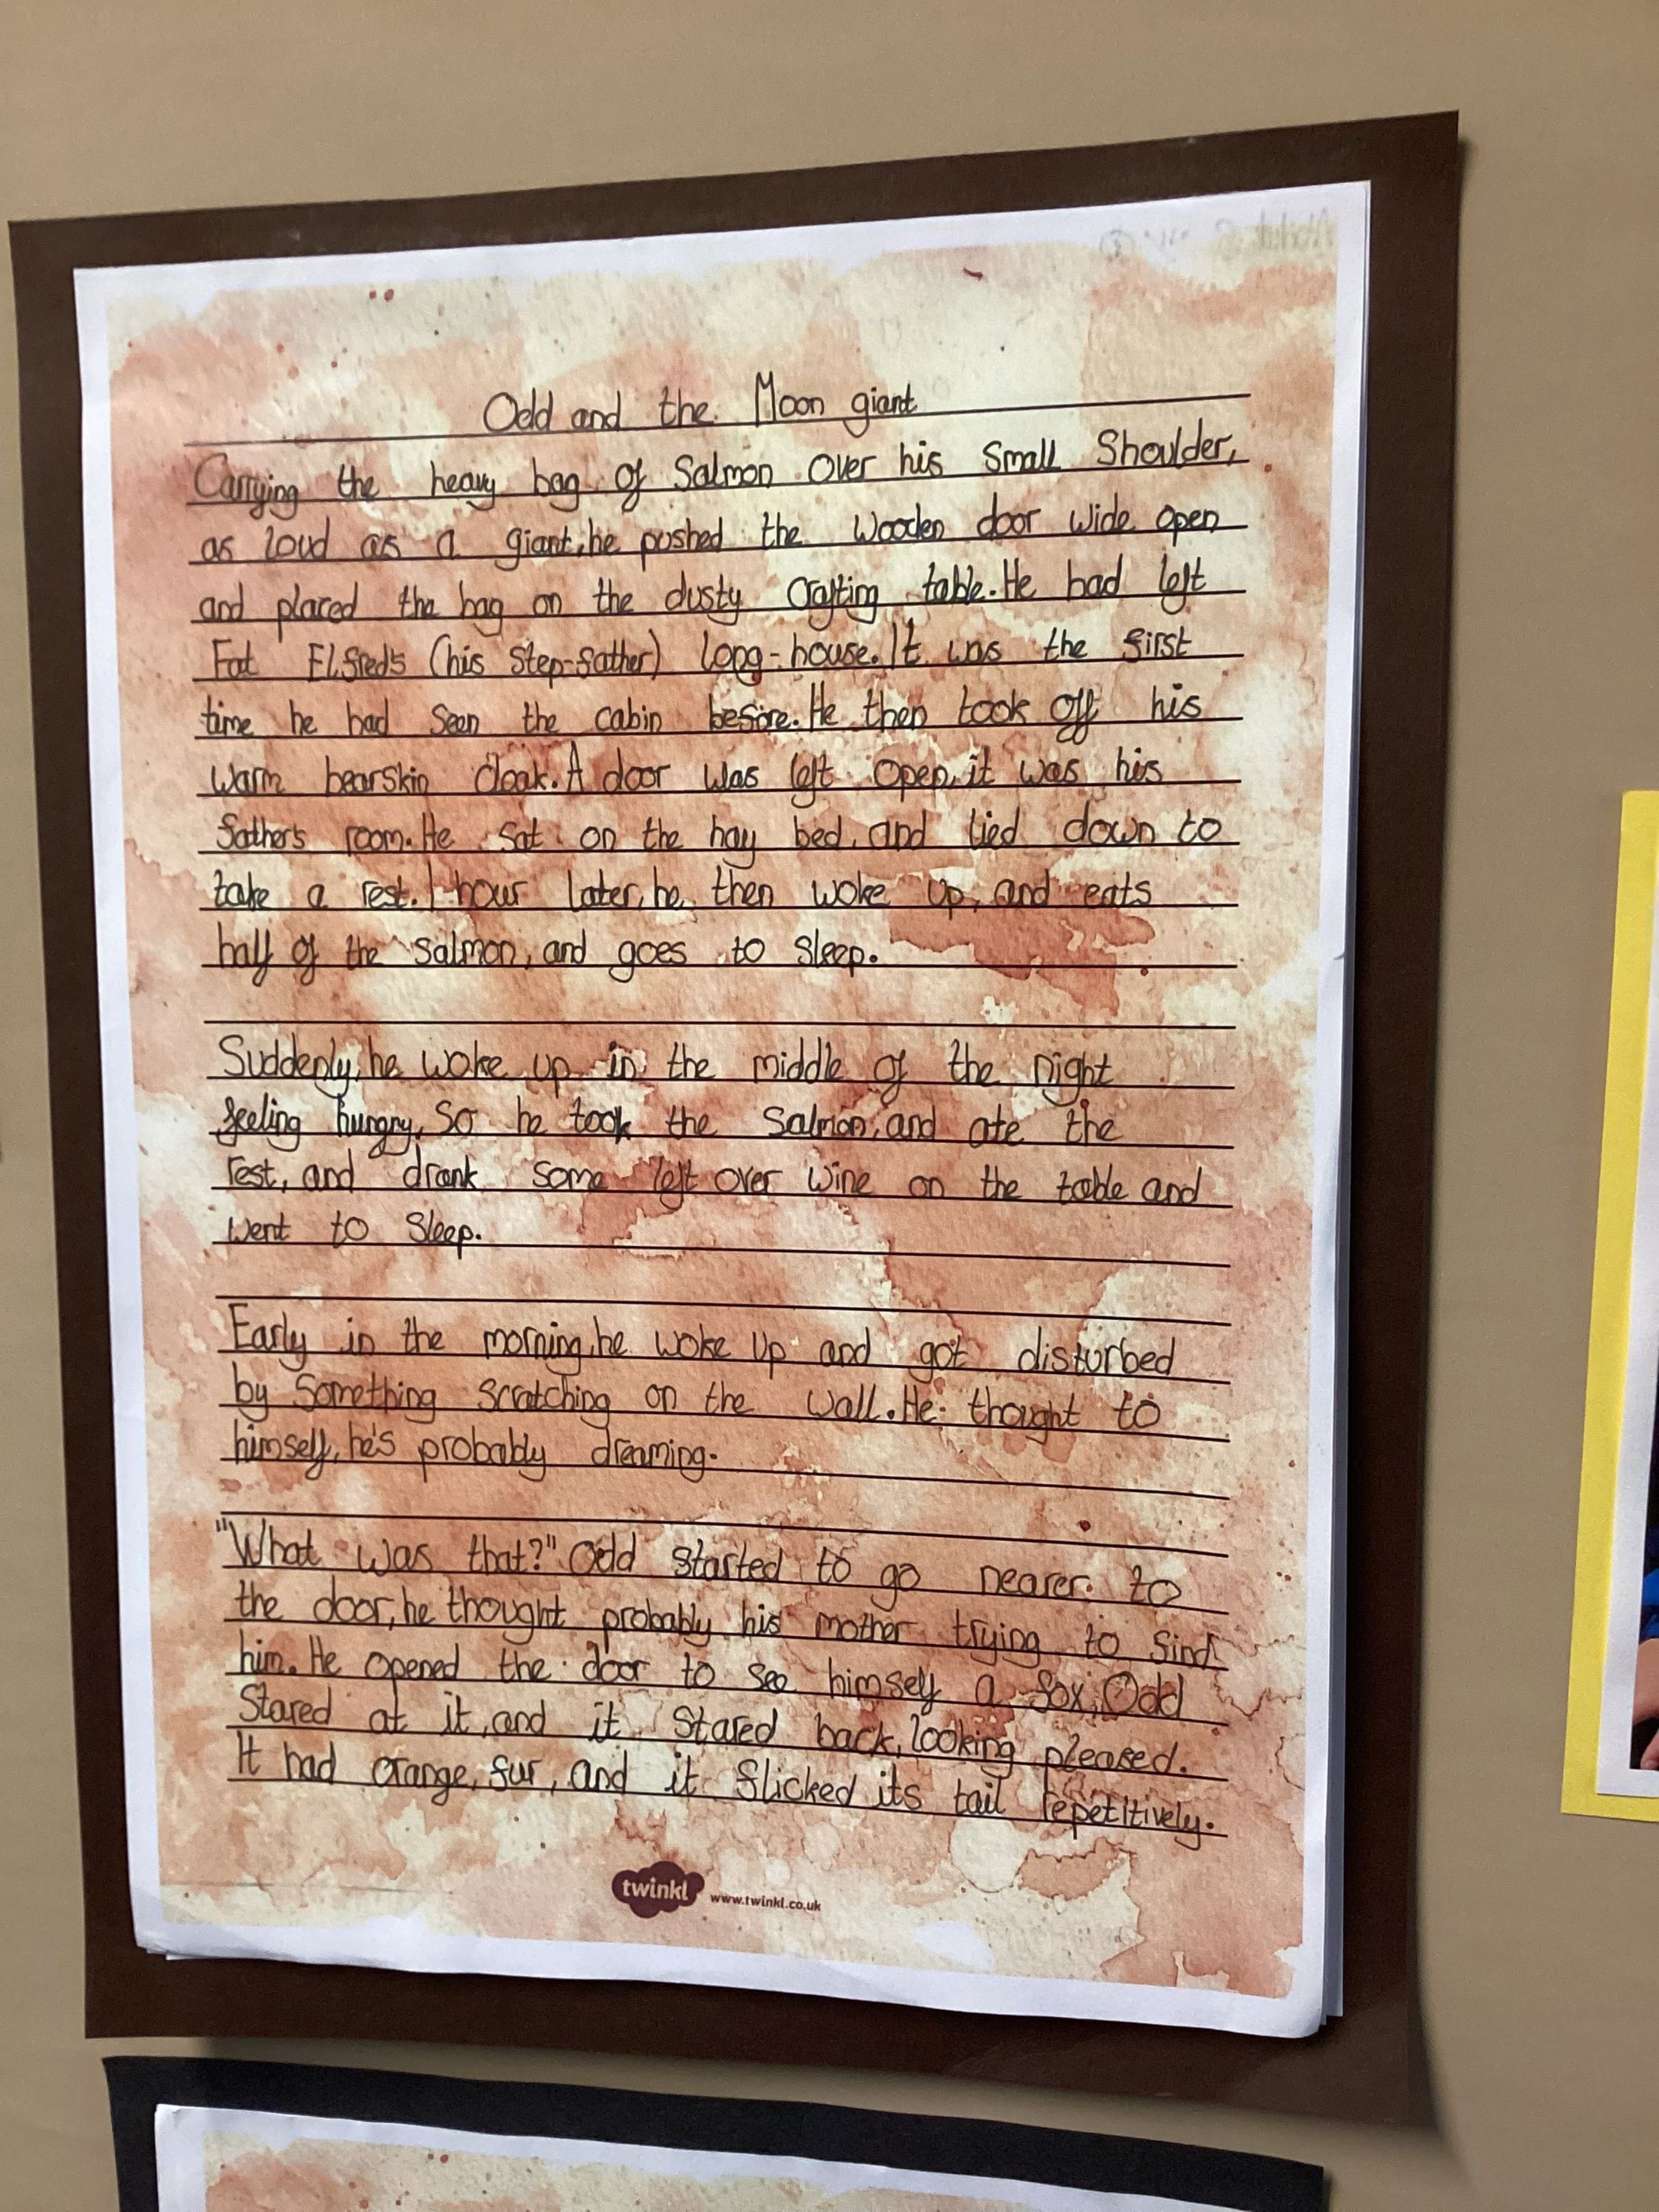 Odd and the Moon giant
Carrying the heavy bag of Salmon over his Small Shoulder,
as loud as a giant, he pushed the wooden door wide open
and placed the bag on the dusty crafting table. He had left
Fat Elfred's (his step-father) long-house. It was the first
time he had seen the cabin before. He then took off his
warm bearskin cloak. A door was left open, it was his
father's room. He sat on the hay bed, and lied down to
take a rest. 1 hour later, he then woke up, and eats
half of the salmon, and goes to sleep.
Suddenly, he woke up in the middle of the night
feeling hungry, so he took the salmon, and ate the
rest, and drank some left over wine on the table and
went to sleep.
Early in the morning, he woke up and got disturbed
by something scratching on the wall. He thought to
himself, he's probably dreaming.
"What was that?" Odd started to go nearer to
the door, he thought probably his mother trying to find
him. He opened the door to see himself a fox; Odd
stared at it, and it stared back, looking pleased.
It had orange, fur, and it flicked its tail repetitively.
twinkl www.twinkl.co.uk